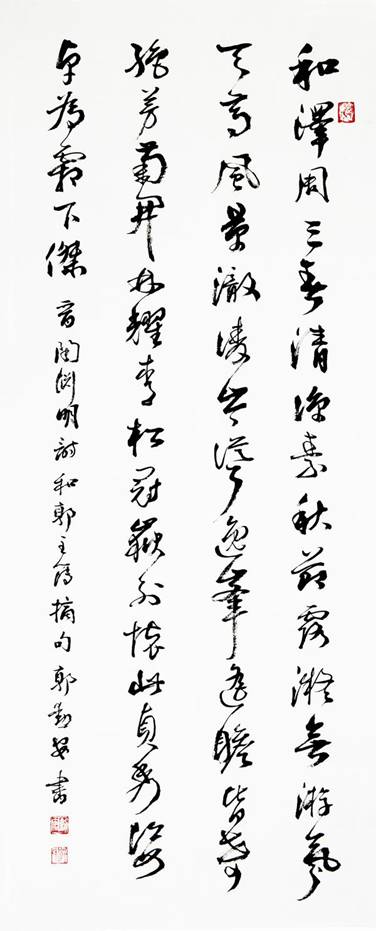 和澤周三春清涼素秋節露凝無游氛
天高風景澈陵岑聳逸峯遙瞻皆奇
絕芳菊開林耀青松冠巖列懷此貞秀姿
卓為霜下傑 晉陶淵明詩和郭主簿摘句 郭書